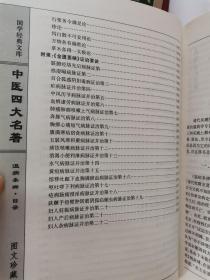 国学经典文库
中医四大名著
温病条辨·目录
图文珍藏
行要务令满足论
疹论
泻白散不可妄用论
万物各有偏胜论
草木各得一太极论
附录:《金匮要略》证治要诀
脏腑经络先后病脉证第一
痉湿暍病脉证第二
百合狐惑阴阳毒病脉证第三
疟病脉证并治第四
中风历节病脉证并治第五
血痹虚劳病脉证并治第六
肺痿肺痈咳嗽上气病脉证并治第七
奔豚气病脉证治第八
胸痹心痛短气病脉证治第九
腹满寒疝宿食病脉证治第十
五脏风寒积聚病脉证并治第十一
痰饮咳嗽病脉证并治第十二
消渴小便利淋病脉证并治第十三
水气病脉证并治第十四
黄疸病脉证并治第十五
惊悸吐衄下血胸满瘀血病脉证治第十六
呕吐哕下利病脉证治第十七
疮痈肠痈浸淫病脉证并治第十八
趺蹶手指臂肿转筋阴狐疝蛔虫病脉证治第十九
妇人妊娠病脉证并治第二十
妇人产后病脉证治第二十一
妇人杂病脉证并治第二十二